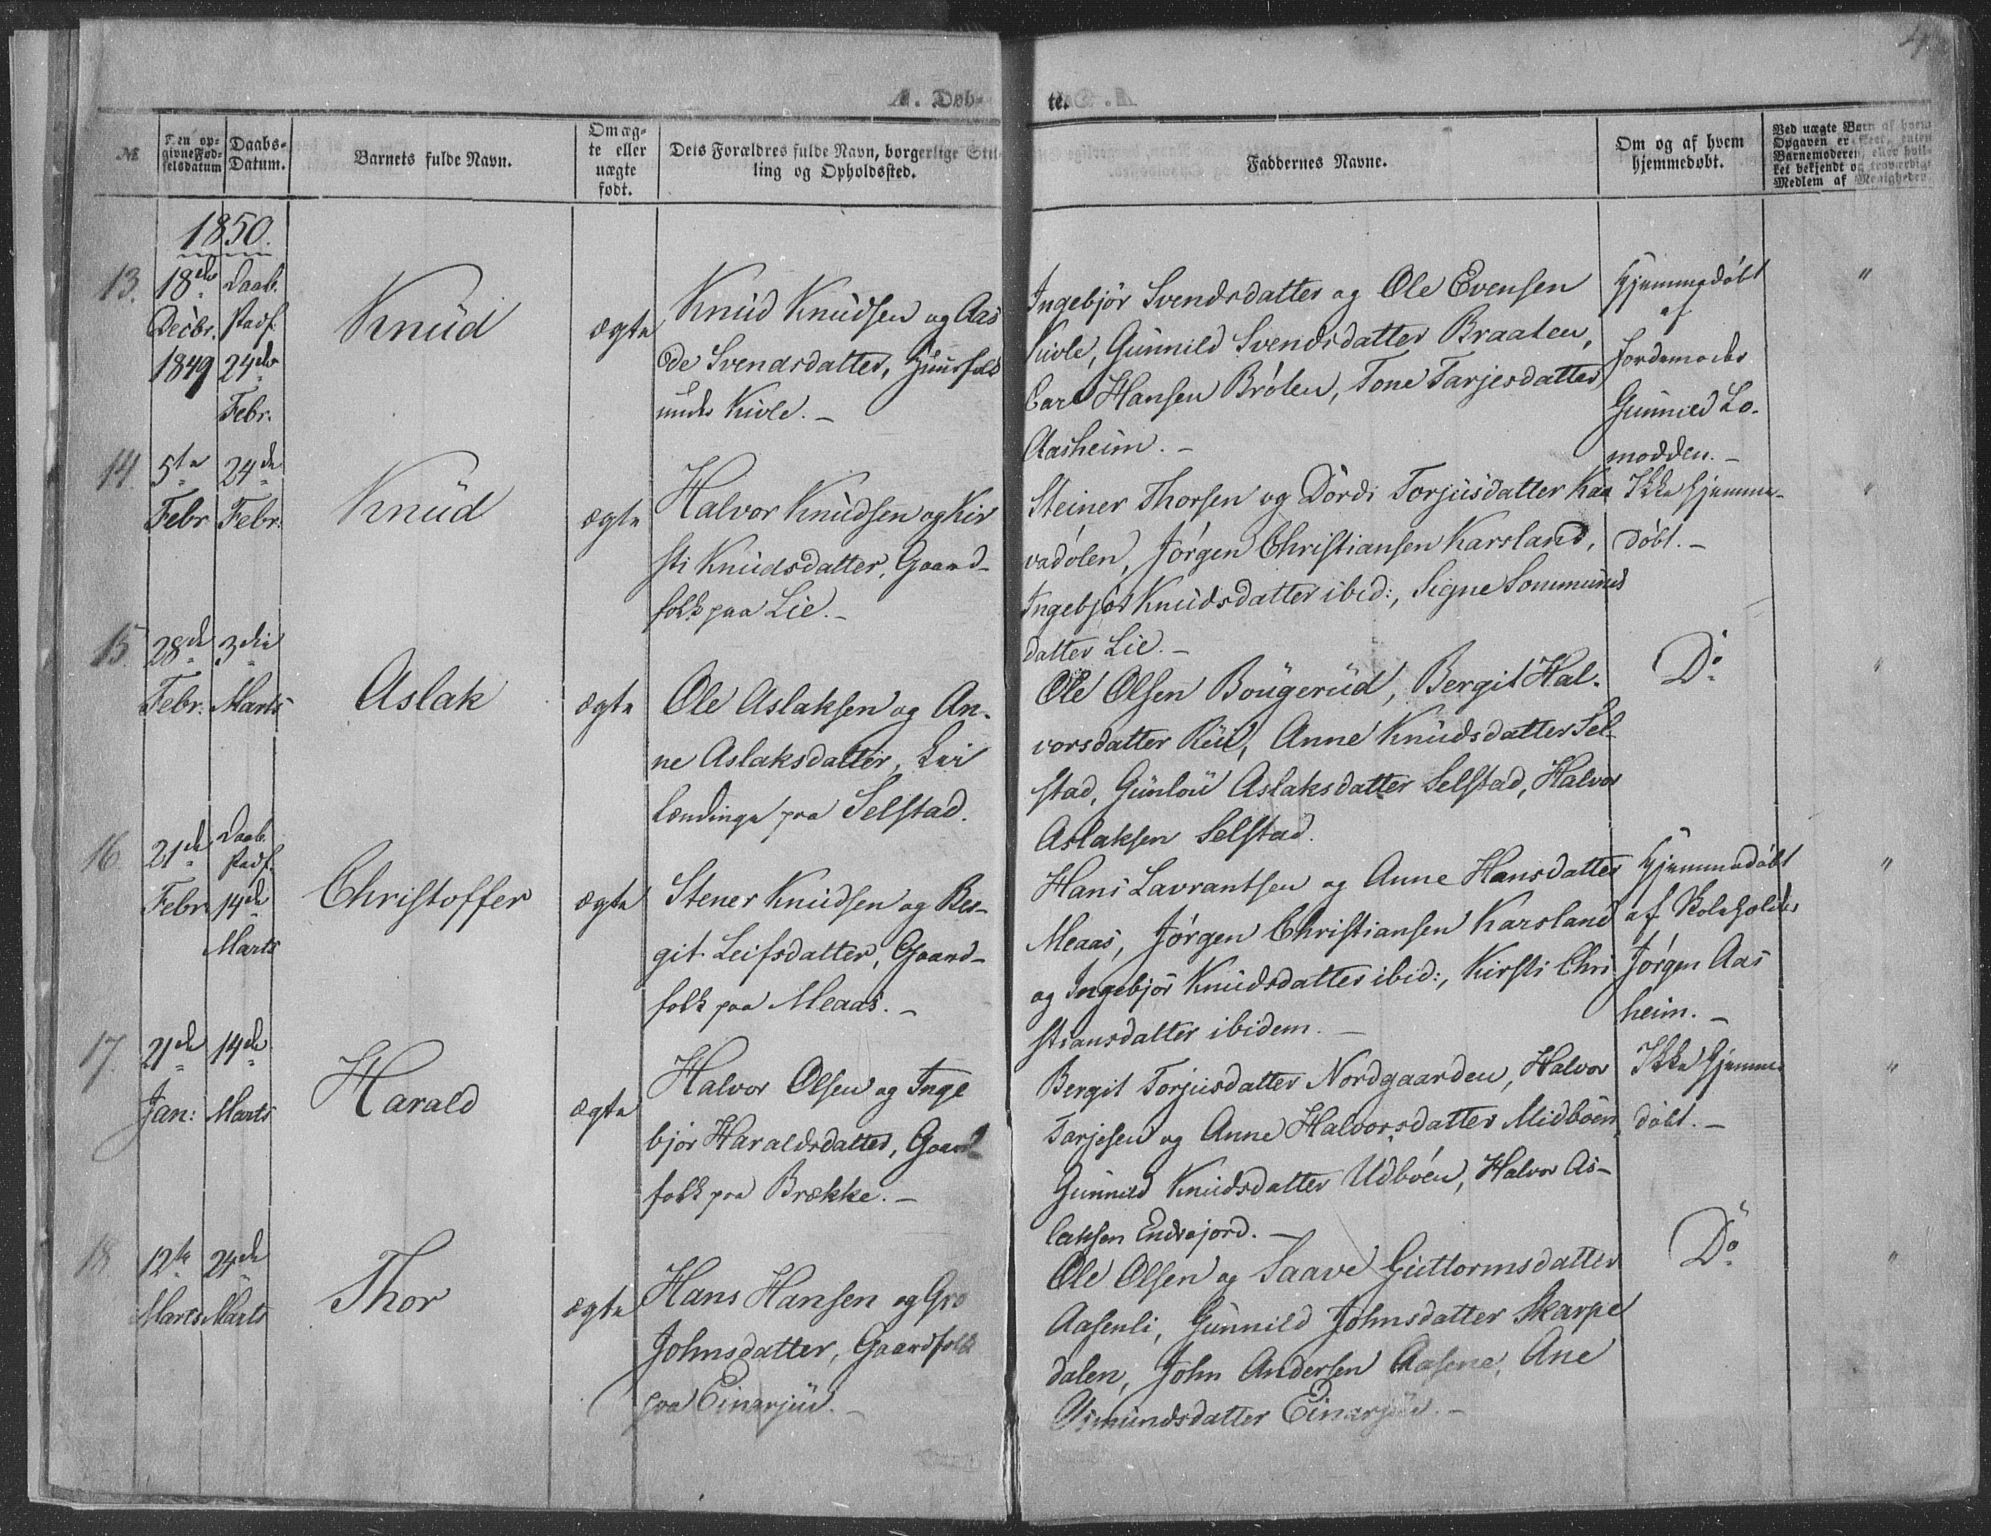 4
A. Døb-
te.
№
Den op-
givne Fød-
selsdatum
Daabs-
Datum.
Barnets fulde Navn.
Om æg-
te eller
uægte
født.
Dets Forældres fulde Navn, borgerlige Stil-
ling og Opholdssted.
Faddernes Navne.
Om og af hvem
hjemmedøbt.
Ved uægte Børn af hvem
Opgaven er skeet, enten
Barnemoderen, eller hvil-
ket bekjendt og troværdigt
Medlem af Menigheden.
1850.
13.
18de
Decbr.
1849
Daab.
Stadf.
24de
Febr.
Knud
ægte
Knud Knudsen og Aas
de Svendsdatter, Huusfolk
under Kivle. -
Ingebjör Svendsdatter og Ole Evensen
Kivle, Gunnild Svendsdatter Braaten,
Carl Hansen Brölen, Tone Tarjesdatter
Aasheim. -
Hjemmedöbt
af
Jordemoder
Gunnild Lo-
modden. -
"
14.
5te
Febr
24de
Febr.
Knud
ægte
Halvor Knudsen og Kir
sti Knudsdatter, Gaard-
folk paa Lie. -
Steiner Thorsen og Dördi Torjusdatter Kaa
vadölen, Jörgen Christiansen Karsland,
Ingebjör Knudsdatter ibid:, Signe Sommunds
datter Lie. -
Ikke hjemme-
döbt. -
"
15.
28de
Febr.
3die
Marts
Aslak
ægte
Ole Aslaksen og An-
ne Aslaksdatter, Lei
lændinge paa Selstad.
Ole Olsen Bougerud, Bergit Hal-
vorsdatter Rui, Anne Knudsdatter Sel-
stad, Gunlou Aslaksdatter Selstad, Halvor
Aslaksen Selstad.
Do
"
16.
21de
Febr
Daab.
Stadf.
14de
Marts
Christoffer
ægte
Stener Knudsen og Ber-
git Leifsdatter, Gaard-
folk paa Meaas. -
Hans Lavrantsen og Anne Hansdatter
Meaas, Jörgen Christiansen Karsland
og Ingebjör Knudsdatter ibid:, Kirsti Chri
stiansdatter ibidem. -
Hjemmedöbt
af Skoleholder
Jörgen Aas
heim. -
"
17.
21de
Jan:
14de
Marts
Harald
ægte
Halvor Olsen og Inge
björ Haraldsdatter, Gaard
folk paa Brække. -
Bergit Torjusdatter Nordgaarden, Halvor
Tarjesen og Anne Halvorsdatter Midböen,
Gunnild Knudsdatter Udböen, Halvor As-
laksen Endrejord. -
Ikke hjemme
döbt. -
"
18.
12te
Marts
24de
Marts
Thor
ægte
Hans Hansen og Gro
Johnsdatter, Gaardfolk
paa Einarjuv. -
Ole Olsen og Saave Guttormsdatter
Aasenli, Gunnild Johnsdatter Skarpe
dalen, John Andersen Aasene, Ane
Osmundsdatter Einarjuv. -
Do
"